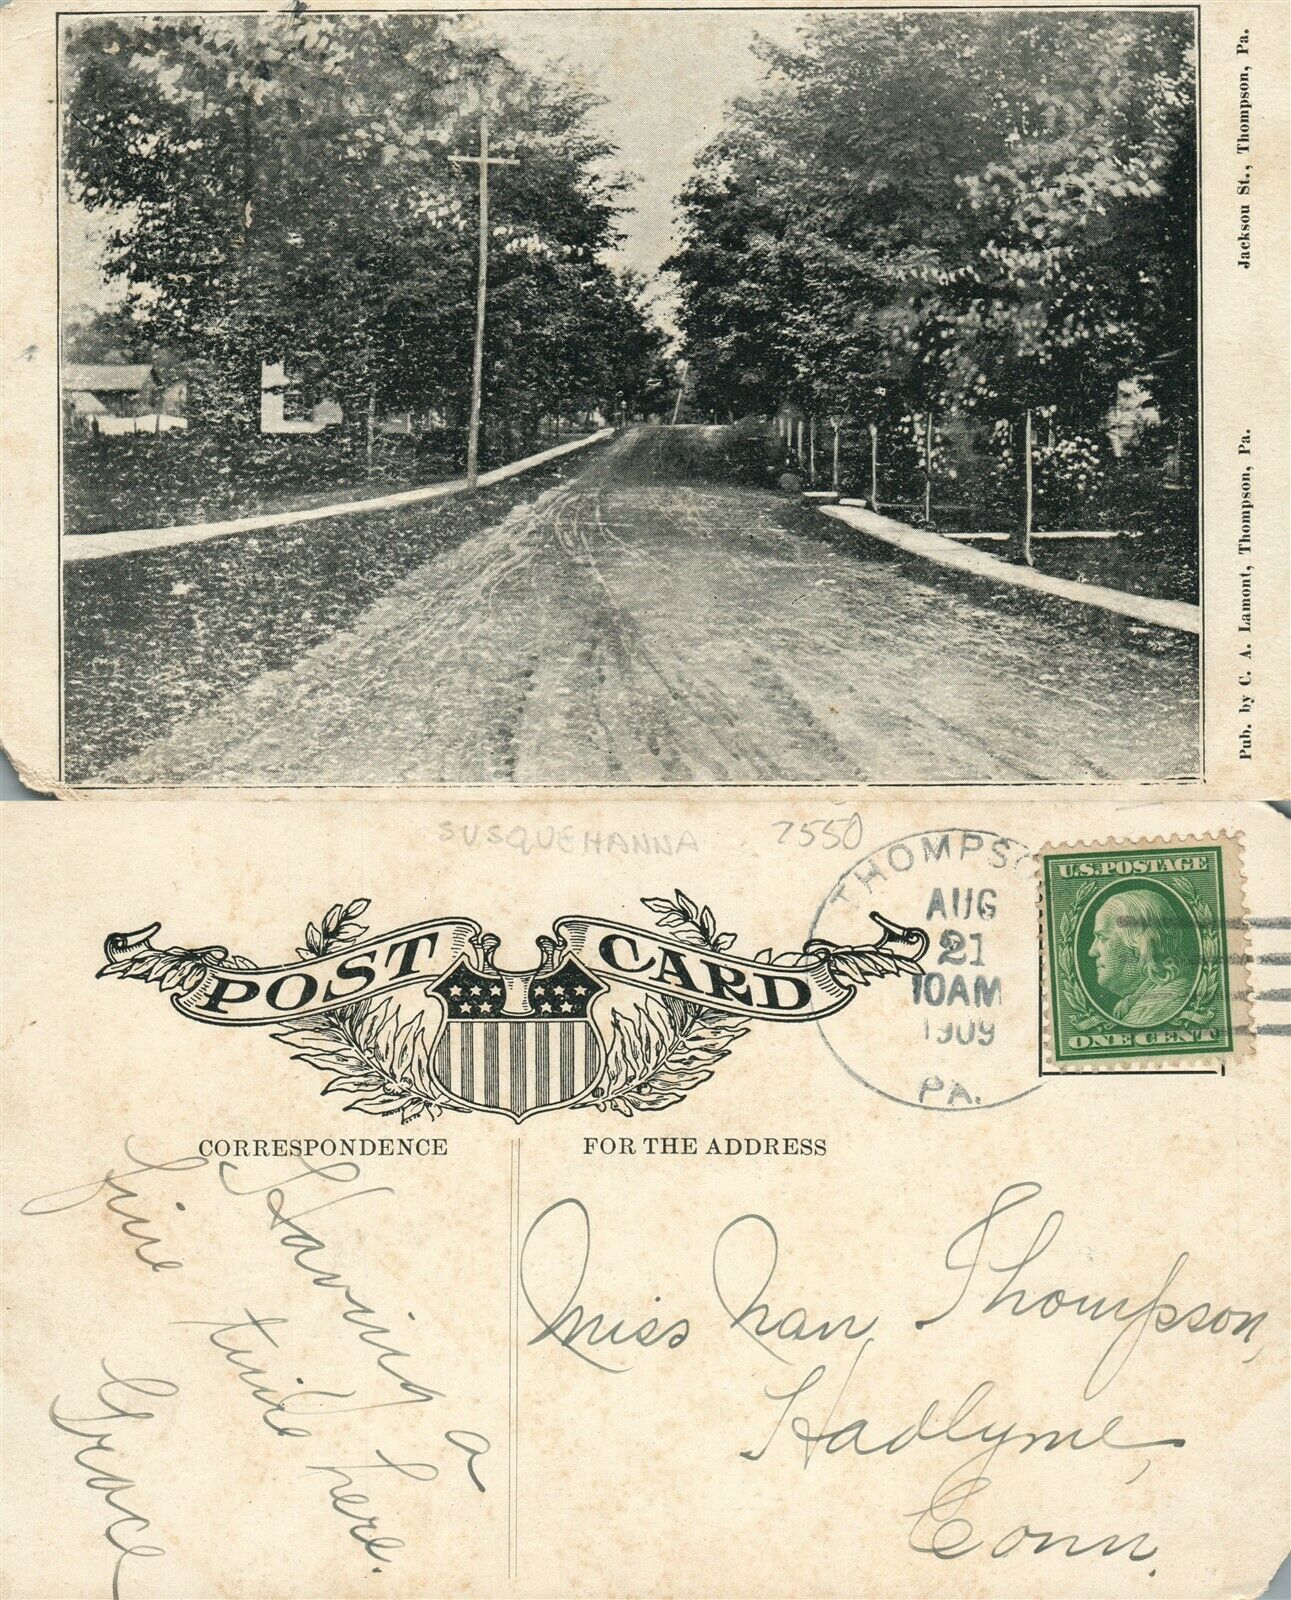 Jackson St., Thompson, Pa.
Pub. by C. A. Lamont, Thompson, Pa.
SUSQUEHANNA 7550
POST CARD
THOMPSO
AUG
21
10AM
1909
PA.
U.S. POSTAGE
ONE CENT
CORRESPONDENCE
FOR THE ADDRESS
Having a
fine time here.
Grace
Miss Nan Thompson,
Hadlyme,
Conn.